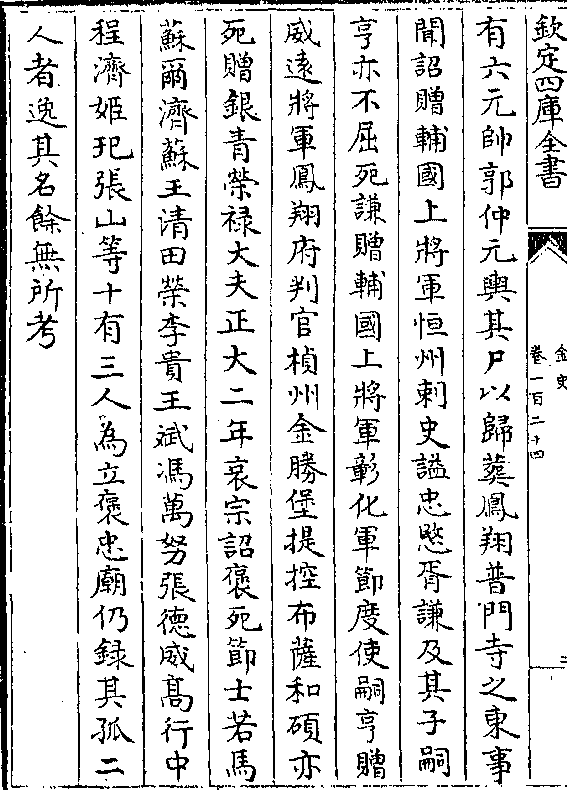 欽定四庫全書
金史
卷一百二十四
三
有六元帥郭仲元輿其尸以歸葬鳳翔普門寺之東事
聞詔贈輔國上將軍恒州刺史諡忠愍胥謙及其子嗣
亨亦不屈死謙贈輔國上將軍彰化軍節度使嗣亨贈
威遠將軍鳳翔府判官楨州金勝堡提控布薩和碩亦
死贈銀青榮禄大夫正大二年哀宗詔褒死節士若馬
蘇爾濟蘇王清田榮李貴王斌馮萬努張德威髙行中
程濟姬玘張山等十有三人為立褒忠廟仍錄其孤二
人者逸其名餘無所考